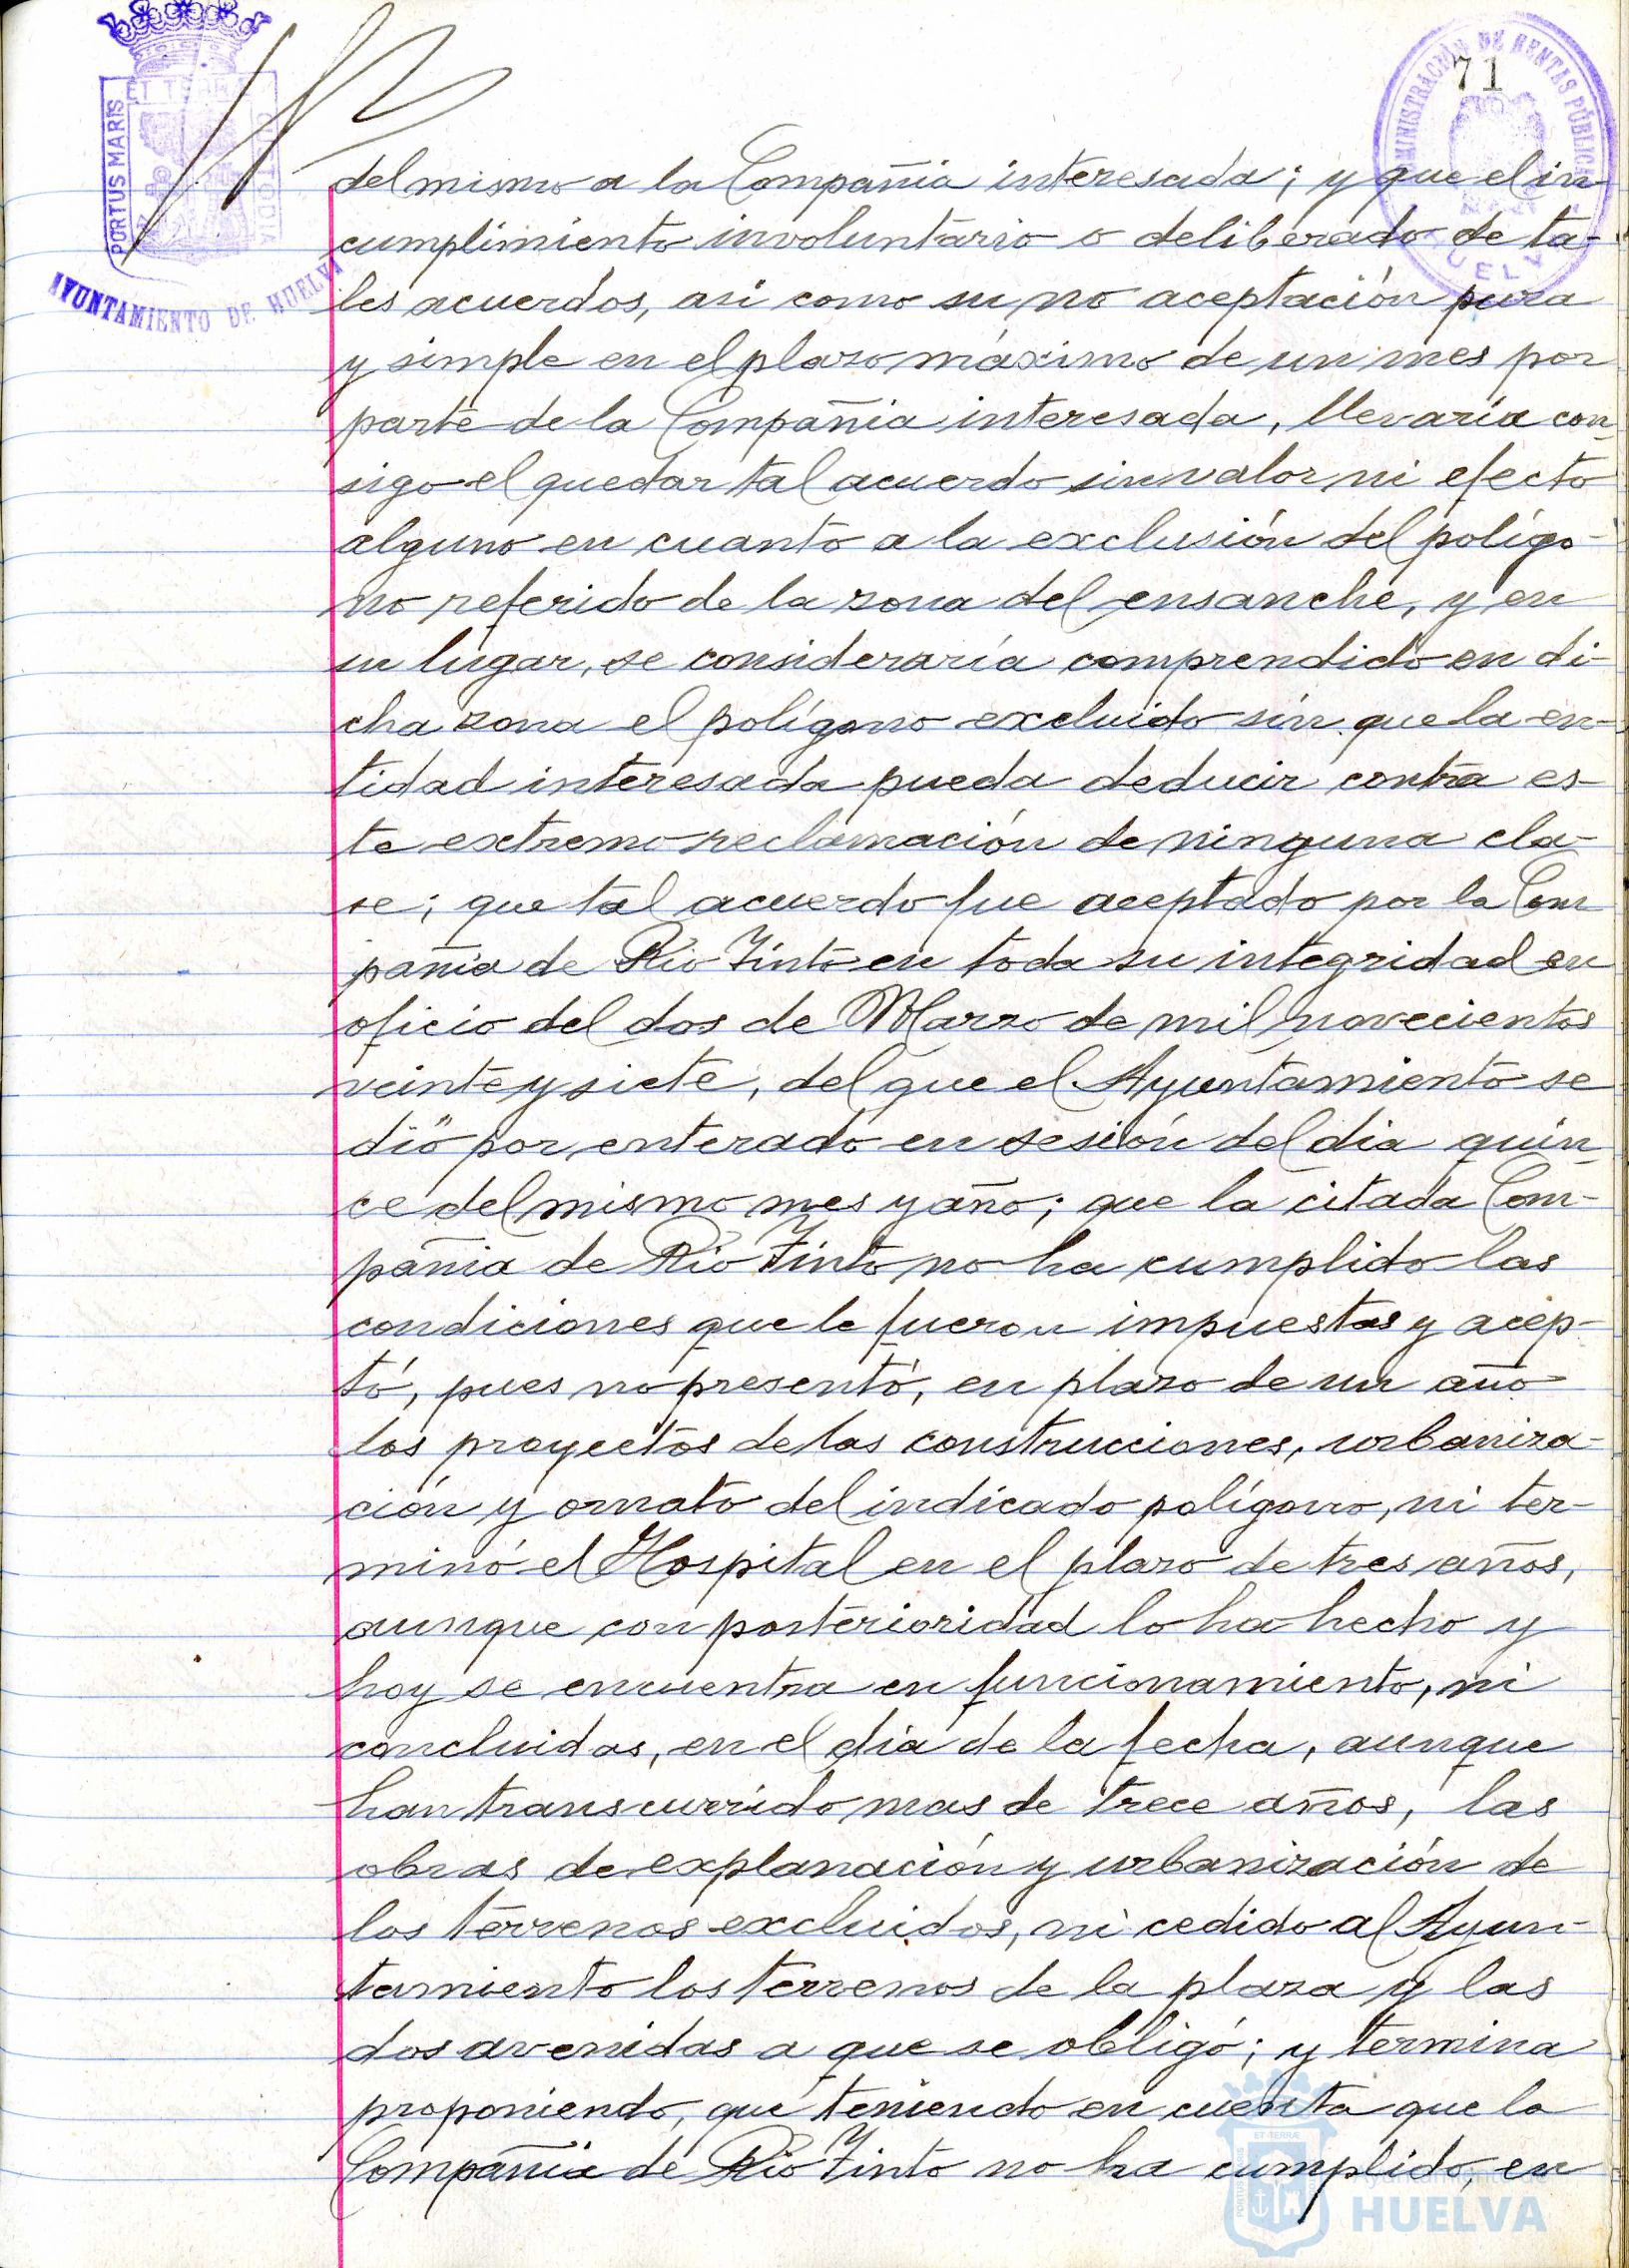 71
PORTUS MARIS
ET TERRÆ
CUSTODIA
AYUNTAMIENTO DE HUELVA
ADMINISTRACIÓN DE RENTAS PÚBLICAS
HUELVA
del mismo a la Compañia interesada; y que el in-
cumplimiento involuntario o deliberado de ta-
les acuerdos, asi como su no aceptación pura
y simple en el plazo máximo de un mes por
parte de la Compañia interesada, llevaría con-
sigo el quedar tal acuerdo sin valor ni efecto
alguno en cuanto a la exclusión del polígo-
no referido de la zona del ensanche, y en
su lugar, se consideraría comprendido en di-
cha zona el polígono excluido sin que la en-
tidad interesada pueda deducir contra es-
te extremo reclamación de ninguna cla-
se; que tal acuerdo fue aceptado por la Com
pañia de Rio Tinto en toda su integridad en
oficio del dos de Marzo de mil novecientos
veinte y siete, del que el Ayuntamiento se
dió por enterado en sesión del dia quin-
ce del mismo mes y año; que la citada Com-
pañia de Rio Tinto no ha cumplido las
condiciones que le fueron impuestas y acep-
tó, pues no presentó, en plazo de un año
los proyectos de las construcciones, urbaniza-
ción y ornato del indicado polígono, ni ter-
minó el Hospital en el plazo de tres años,
aunque con posterioridad lo ha hecho y
hoy se encuentra en funcionamiento, ni
concluidas, en el dia de la fecha, aunque
han transcurrido mas de trece años, las
obras de explanación y urbanización de
los terrenos excluidos, ni cedido al Ayun-
tamiento los terrenos de la plaza y las
dos avenidas a que se obligó; y termina
proponiendo, que teniendo en cuenta que la
Compañia de Rio Tinto no ha cumplido, en
HUELVA